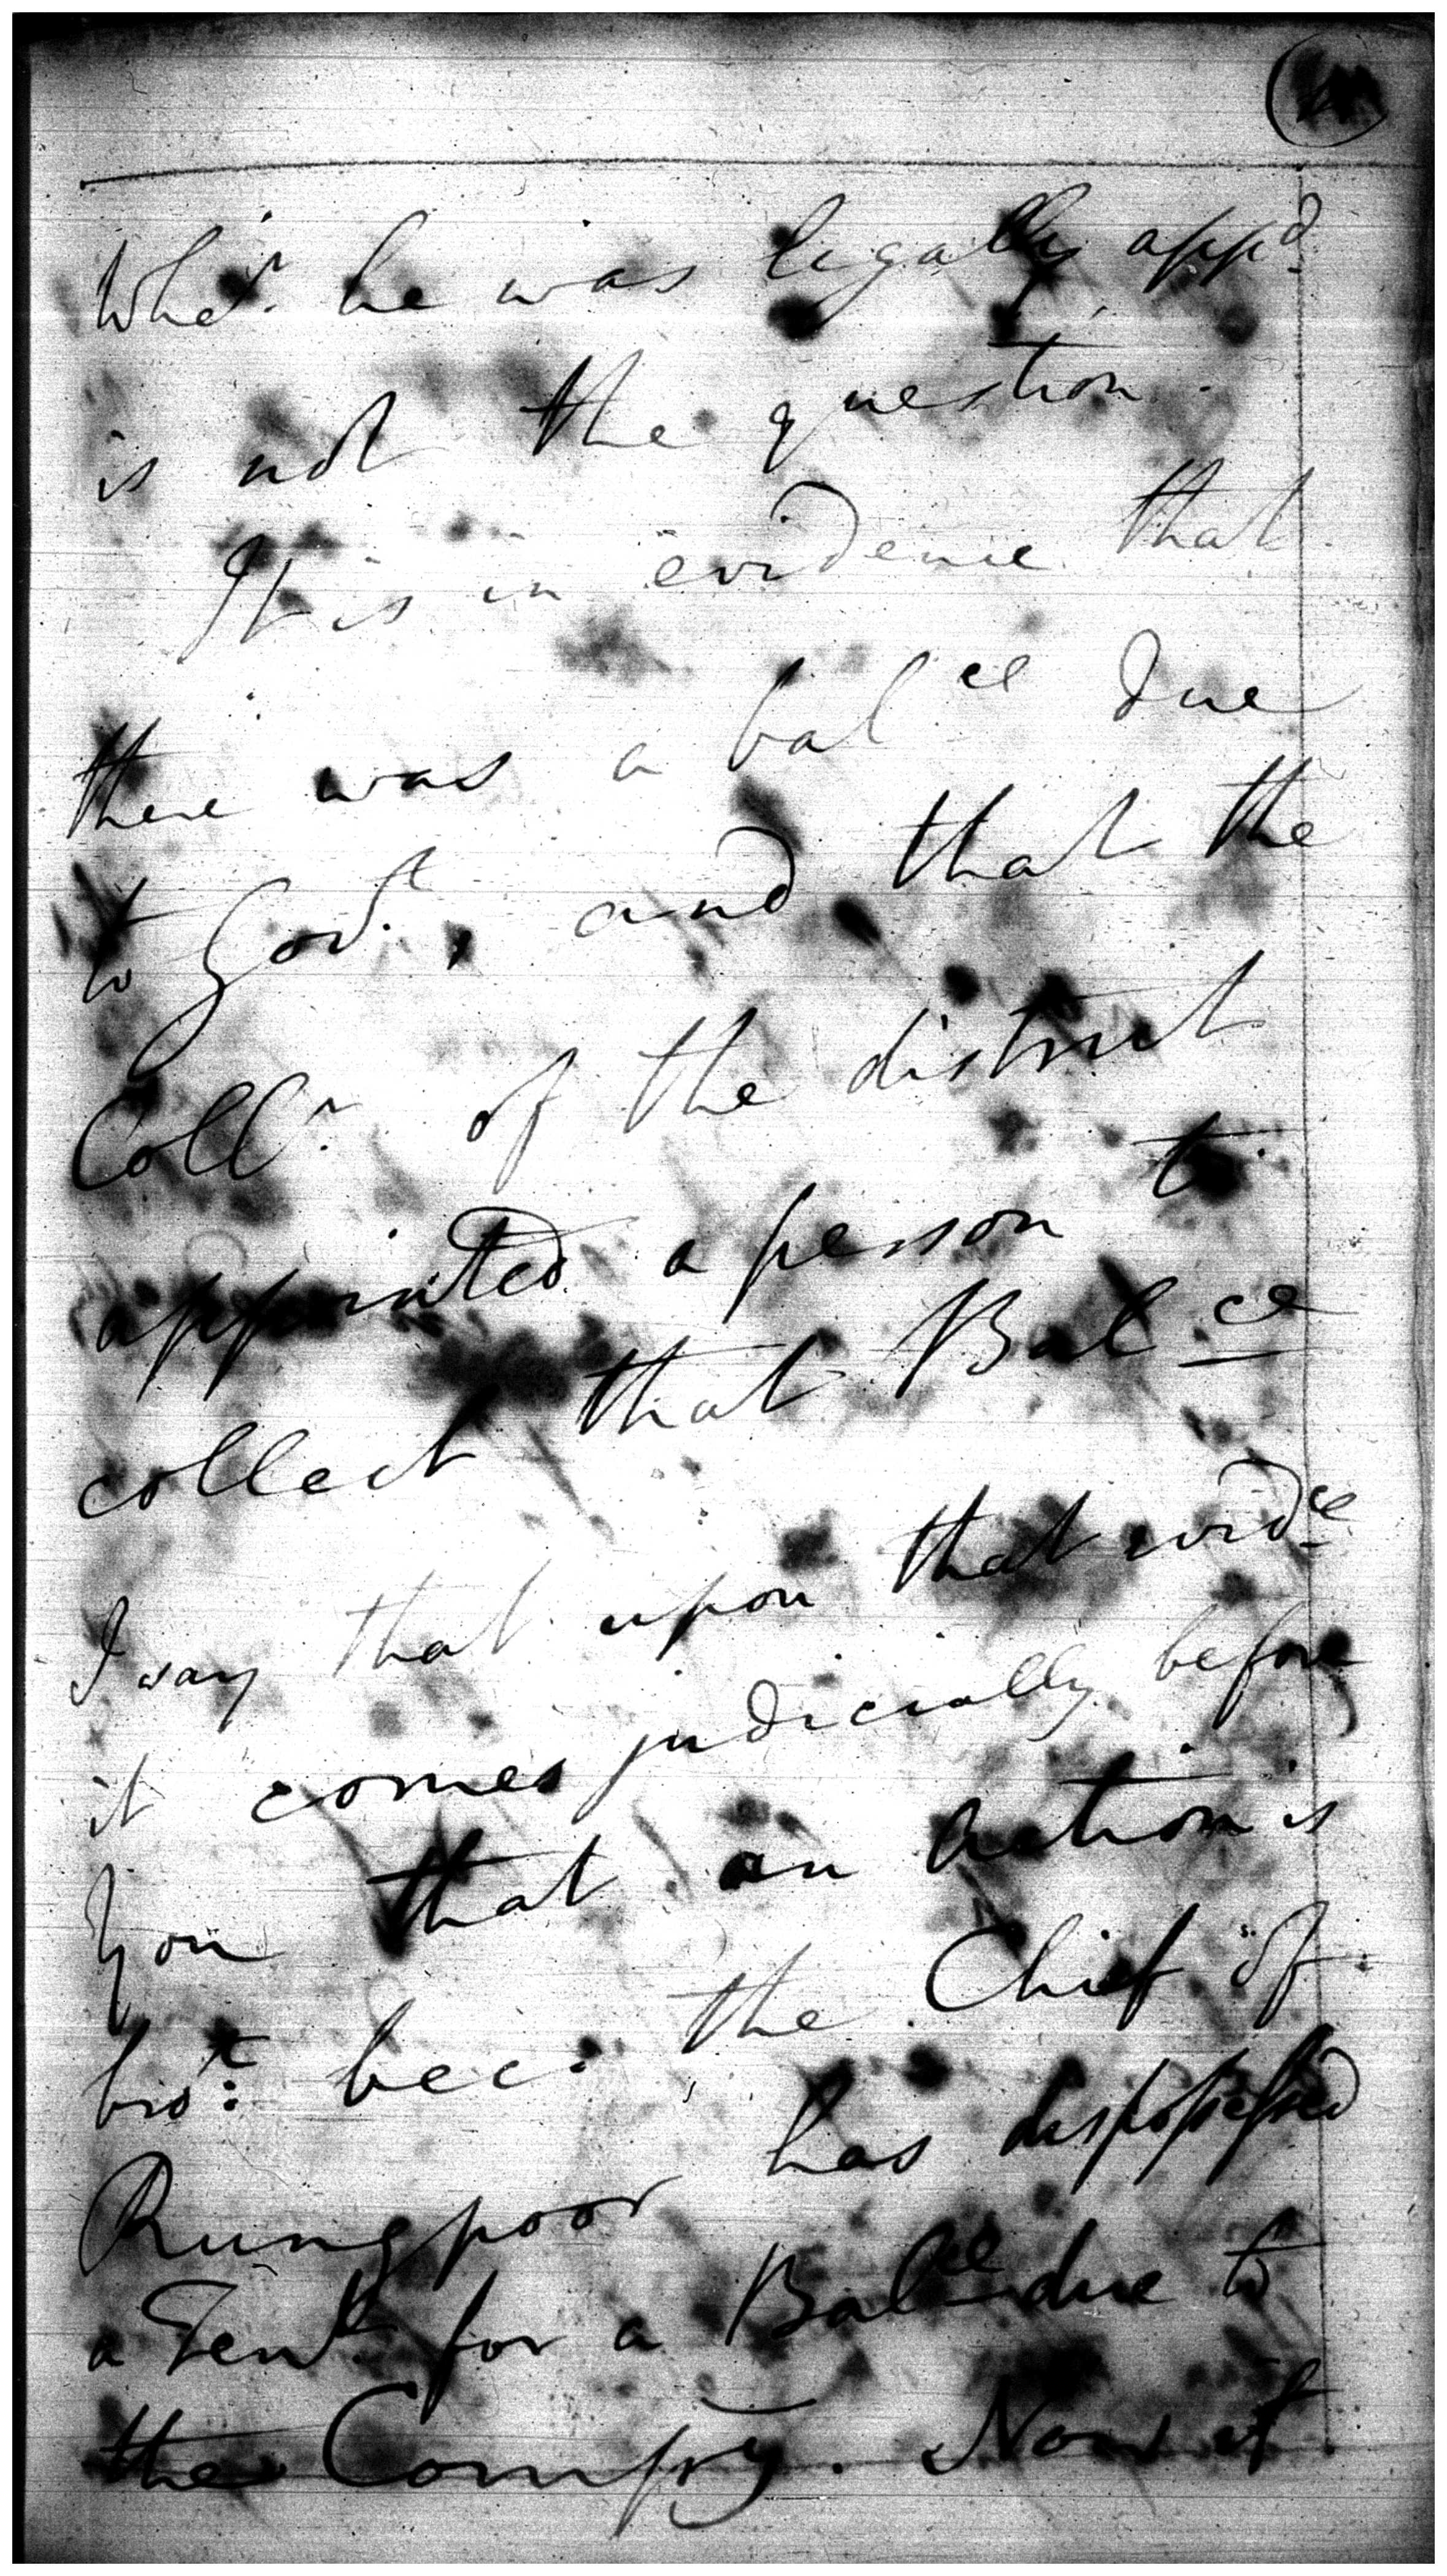 Whe.r he was legally app.d
is not the question.
It is in evidence that
there was a bal.ce due
to Gov.t, and that the
Coll.r of the district
appointed a person to
collect that Bal.ce
I say that upon that evid.ce
it comes judicially before
you that an action is
bro.t bec: the Chief of
Rungpoor has dispossessed
a Ten.t for a Bal.ce due to
the Comp.y. Now if